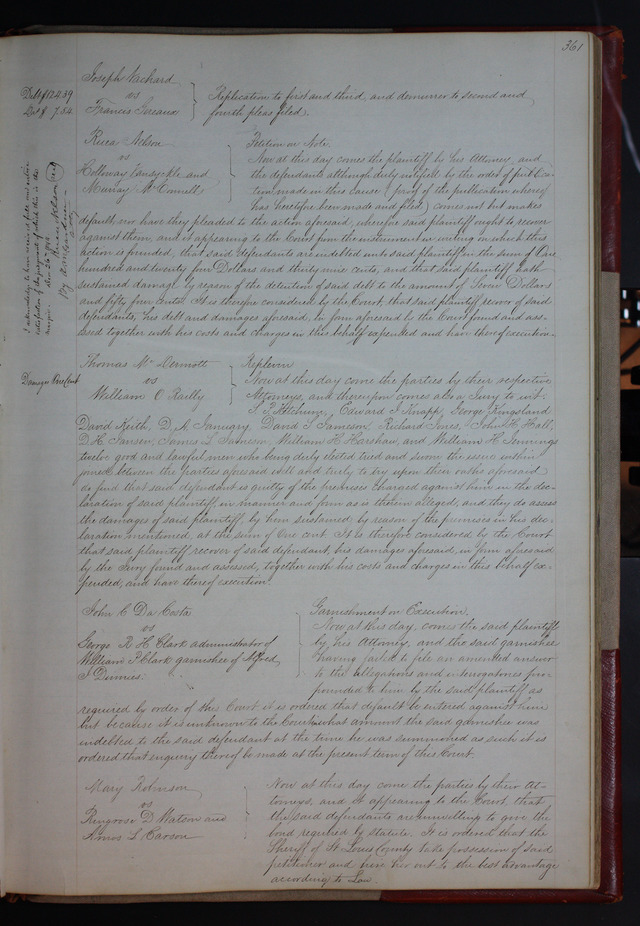 361
Joseph Vachard
vs
Francis Giraux
Debt $124.39
Dam $ 7.54
Replication to first and third, and demurrer to second and
fourth pleas filed.
Rives Nelson
vs
Holloway Vansyckle and
Murray McConnell
I acknowledge to have received full and entire
satisfaction of the judgment of which this is the
margin
Rives Nelson
By
Petition on Note.
Now at this day comes the plaintiff by his Attorney, and
the defendants although duly notified by the order of publica-
tion made in this cause (proof of the publication whereof
has heretofore been made and filed) comes not but makes
default, nor have they pleaded to the action aforesaid, wherefore said plaintiff ought to recover
against them, and it appearing to the Court from the instrument in writing on which this
action is founded, that said defendants are indebted unto said plaintiff in the sum of One
hundred and twenty four Dollars and thirty nine cents, and that said plaintiff hath
sustained damage by reason of the detention of said debt to the amount of Seven Dollars
and fifty four cents. It is therefore considered by the Court, that said plaintiff recover of said
defendants, his debt and damages aforesaid, in form aforesaid by the Court found and ass-
essed together with his costs and charges in this behalf expended and have thereof execution.
Thomas McDermott
vs
William O Railly
Damage One Cent
Replevin
Now at this day come the parties by their respective
Attorneys, and thereupon comes also a Jury to wit:
Edward J Knapp, George Kingsland
David Keith, D. A. January, David T Jameson, Richard Jones, John H. Hall,
D. H. Jansen, James L Jameson, William H Harshaw, and William H. Jennings
twelve good and lawful men who being duly elected tried and sworn the issue within
joined between the parties aforesaid well and truly to try upon their oaths aforesaid
do find that said defendant is guilty of the premises charged against him in the dec-
laration of said plaintiff, in manner and form as is therein alleged, and they do assess
the damages of said plaintiff, by him sustained by reason of the premises in his dec-
laration mentioned, at the sum of One cent. It is therefore considered by the Court
that said plaintiff recover of said defendant, his damages aforesaid, in form aforesaid
by the Jury found and assessed, together with his costs and charges in this behalf ex-
pended, and have thereof execution.
John C Da Costa
vs
George R H Clark administrator of
William P Clark garnishee of Alfred
J Dunnies.
Garnishment on Execution.
Now at this day, comes the said plaintiff
by his Attorney, and the said garnishee
having failed to file an amended answer
to the allegations and interrogatories pro-
pounded to him by the said plaintiff as
required by order of this Court it is ordered that default be entered against him
but because it is unknown to the Court in what amount the said garnishee was
indebted to the said defendant at the time he was summoned as such it is
ordered that enquiry thereof be made at the present term of this Court.
Mary Robinson
vs
Ringrose D Watson and
Amos L Carson
Now at this day come the parties by their At-
torneys, and it appearing to the Court, that
the said defendants are unwilling to give the
bond required by statute. It is ordered that the
Sheriff of St Louis County take possession of said
petitioner and hire her out to the best advantage
according to Law.